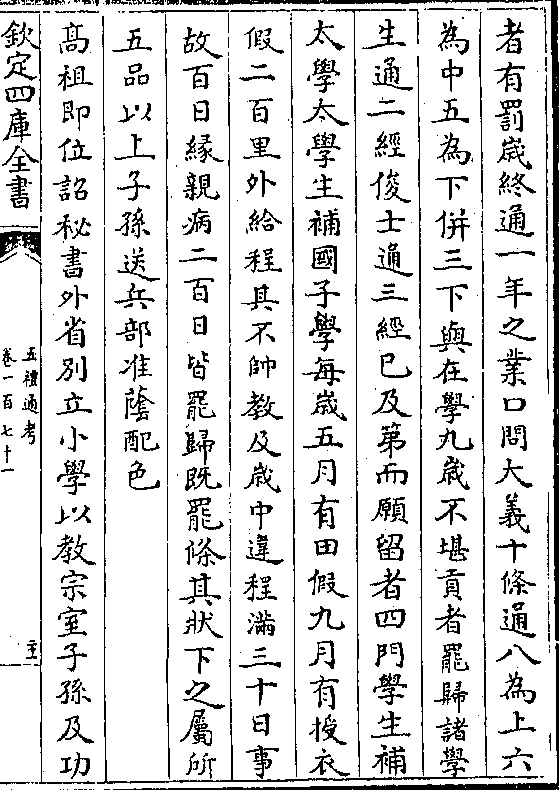 者有罰歲終通一年之業口問大義十條通八為上六
為中五為下併三下與在學九歲不堪貢者罷歸諸學
生通二經俊士通三經已及第而願留者四門學生補
太學太學生補國子學每歲五月有田假九月有授衣
假二百里外給程其不帥教及歲中違程滿三十日事
故百日緣親病二百日皆罷歸既罷條其狀下之屬所
五品以上子孫送兵部准䕃配色
高祖即位詔秘書外省別立小學以教宗室子孫及功
欽定四庫全書
五禮通考
卷一百七十一